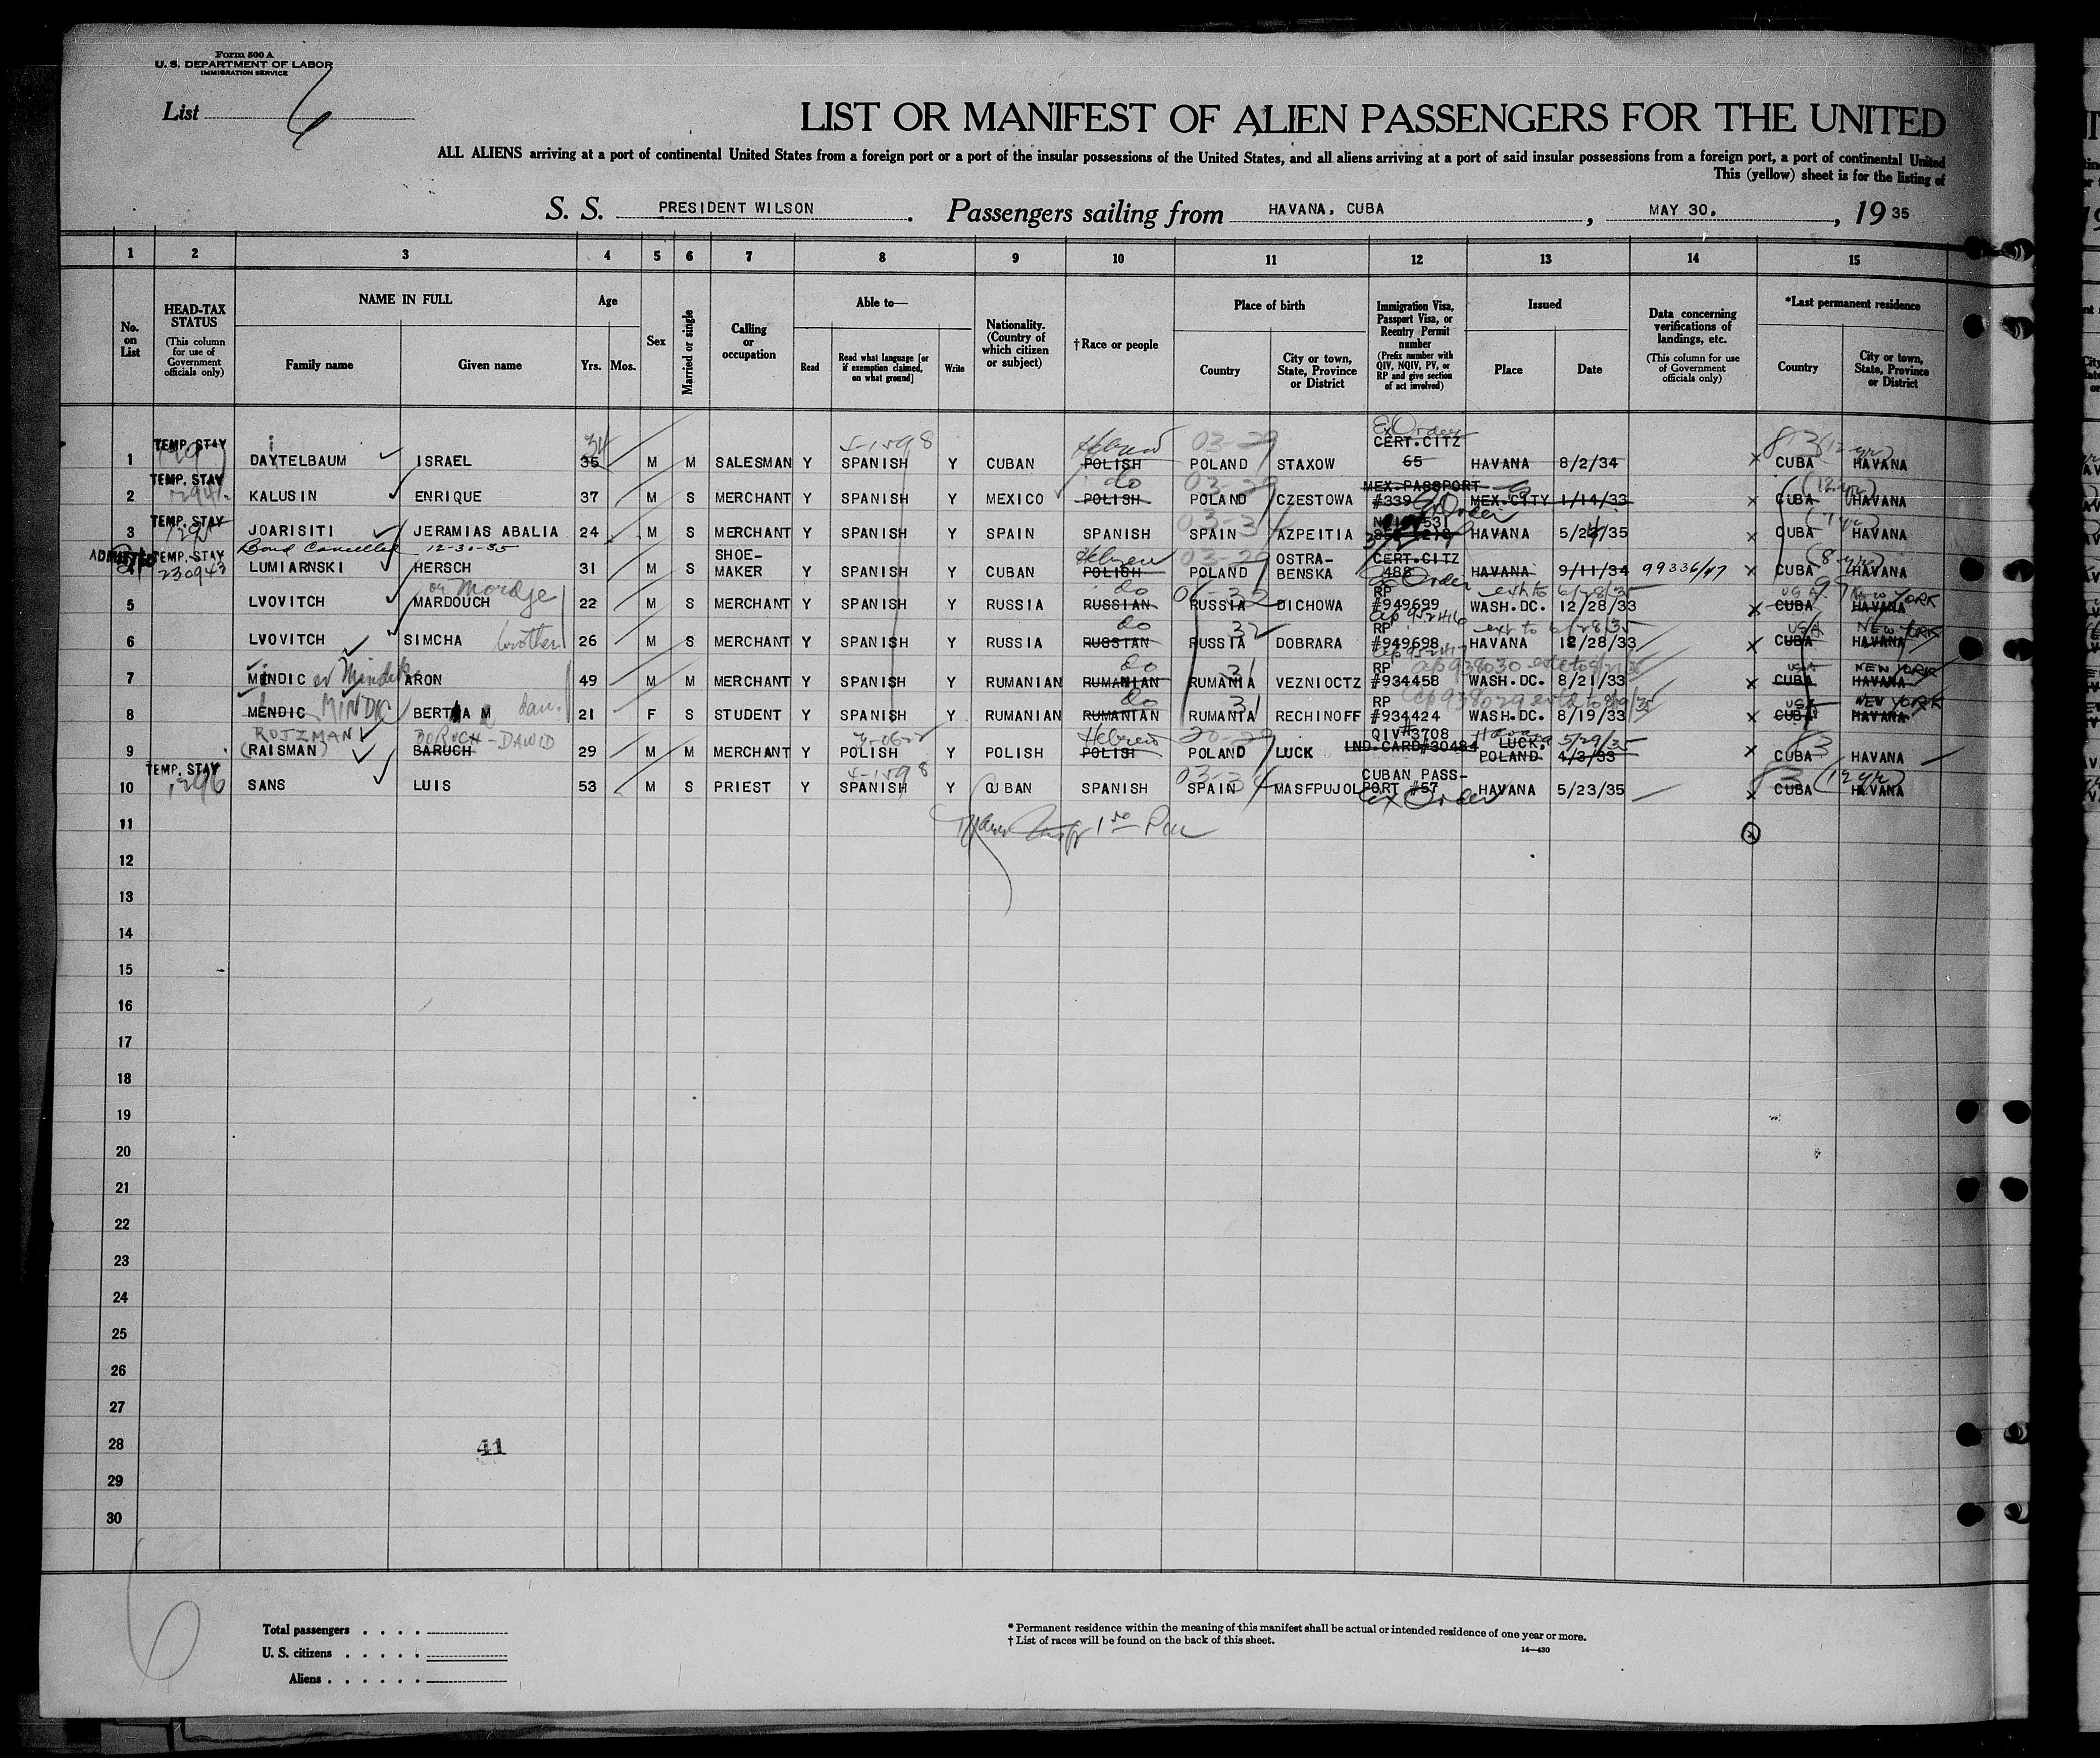 Form 500 A
U. S. DEPARTMENT OF LABOR
IMMIGRATION SERVICE
List 6
LIST OR MANIFEST OF ALIEN PASSENGERS FOR THE UNITED
ALL ALIENS arriving at a port of continental United States from a foreign port or a port of the insular possessions of the United States, and all aliens arriving at a port of said insular possessions from a foreign port, a port of continental United
This (yellow) sheet is for the listing of
S. S. PRESIDENT WILSON. Passengers sailing from HAVANA, CUBA, MAY 30., 19 35
1 2 3 4 5 6 7 8 9 10 11 12 13 14 15
No. on List
HEAD-TAX STATUS (This column for use of Government officials only)
NAME IN FULL
Family name Given name
Age
Yrs. Mos.
Sex
Married or single
Calling or occupation
Able to—
Read Read what language [or if exemption claimed, on what ground] Write
Nationality. (Country of which citizen or subject)
†Race or people
Place of birth
Country City or town, State, Province or District
Immigration Visa, Passport Visa, or Reentry Permit number (Prefix number with QIV, NQIV, PV, or RP and give section of act involved)
Issued
Place Date
Data concerning verifications of landings, etc. (This column for use of Government officials only)
*Last permanent residence
Country City or town, State, Province or District
TEMP. STAY 34 5-1598 Hebrew 03-29 Ex Order CERT.CITZ 83 (12 yr)
1 DAYTELBAUM ISRAEL 35 M M SALESMAN Y SPANISH Y CUBAN POLISH POLAND STAXOW 65 HAVANA 8/2/34 CUBA HAVANA
TEMP. STAY do 03-29 MEX.PASSPORT (12 yr)
2 KALUSIN ENRIQUE 37 M S MERCHANT Y SPANISH Y MEXICO POLISH POLAND CZESTOWA #339 Ex Order MEX.CITY 1/14/33 CUBA HAVANA
TEMP. STAY 03-34
3 JOARISITI JERAMIAS ABALIA 24 M S MERCHANT Y SPANISH Y SPAIN SPANISH SPAIN AZPEITIA HAVANA 5/24/35 CUBA HAVANA
Bond Cancelled 12-30-35
ADMITTED TEMP. STAY SHOE- Hebrew 03-29 OSTRA- CERT.CITZ (8 yr)
4 230943 LUMIARNSKI HERSCH 31 M S MAKER Y SPANISH Y CUBAN POLISH POLAND BENSKA 488 Ex Order HAVANA 9/11/34 99336/47 CUBA HAVANA
or Mordje do RP ext to 6/28/35 USA New YORK
5 LVOVITCH MARDOUCH 22 M S MERCHANT Y SPANISH Y RUSSIA RUSSIAN RUSSIA DICHOWA #949699 WASH.DC. 12/28/33 CUBA HAVANA
do 32 RP ext to 6/28/35 USA NEW YORK
6 LVOVITCH SIMCHA brother 26 M S MERCHANT Y SPANISH Y RUSSIA RUSSIAN RUSSIA DOBRARA #949698 HAVANA 12/28/33 CUBA HAVANA
do 31 RP USA NEW YORK
7 MENDIC or Mindik ARON 49 M M MERCHANT Y SPANISH Y RUMANIAN RUMANIAN RUMANIA VEZNIOCTZ #934458 WASH.DC. 8/21/33 CUBA HAVANA
do 31 RP USA NEW YORK
8 MENDIC MINDIC BERTHA M dau. 21 F S STUDENT Y SPANISH Y RUMANIAN RUMANIAN RUMANIA RECHINOFF #934424 WASH.DC. 8/19/33 CUBA HAVANA
ROJZMAN BORUCH-DAWID Hebrew 20-29 QIV#3708 Havana 5/29/35
9 (RAISMAN) BARUCH 29 M M MERCHANT Y POLISH Y POLISH POLISH POLAND LUCK IND.CARD#30484 LUCK. POLAND 4/3/33 CUBA HAVANA
TEMP. STAY 5-1598 03-34 CUBAN PASS- 83 (12 yr)
10 1296 SANS LUIS 53 M S PRIEST Y SPANISH Y CUBAN SPANISH SPAIN MASFPUJOL PORT #57 Ex Order HAVANA 5/23/35 CUBA HAVANA
11
12
13
14
15
16
17
18
19
20
21
22
23
24
25
26
27
28 41
29
30
6
Total passengers
U. S. citizens
Aliens
* Permanent residence within the meaning of this manifest shall be actual or intended residence of one year or more.
† List of races will be found on the back of this sheet.
14—430